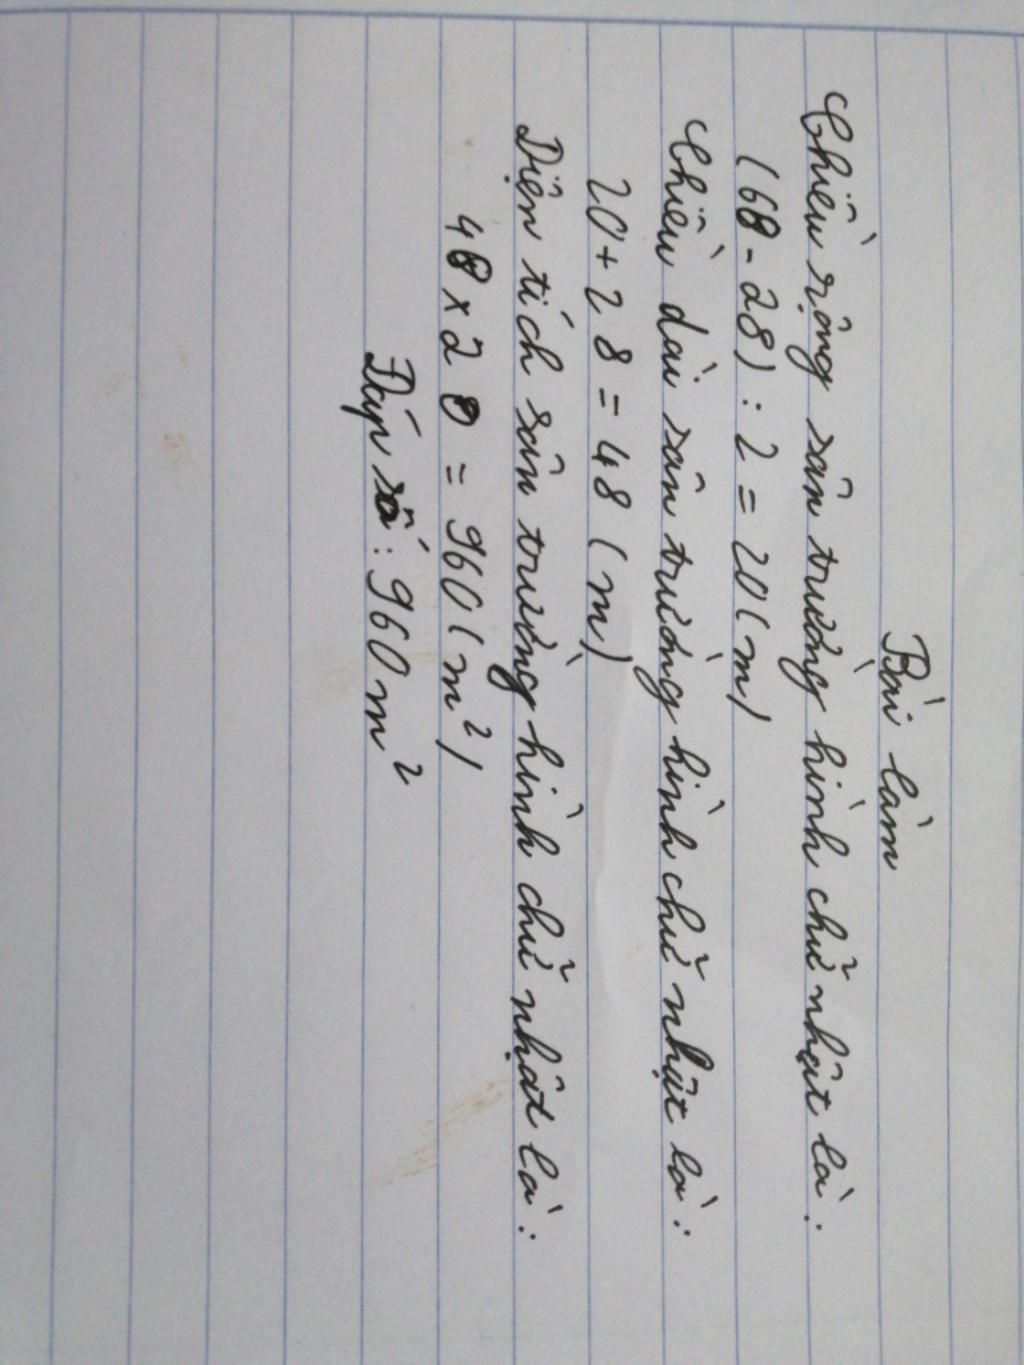 Bài làm
Chiều rộng sân trường hình chữ nhật là:
(68 - 28) : 2 = 20 (m)
Chiều dài sân trường hình chữ nhật là:
20 + 28 = 48 (m)
Diện tích sân trường hình chữ nhật là:
48 x 20 = 960 (m²)
Đáp số: 960 m²